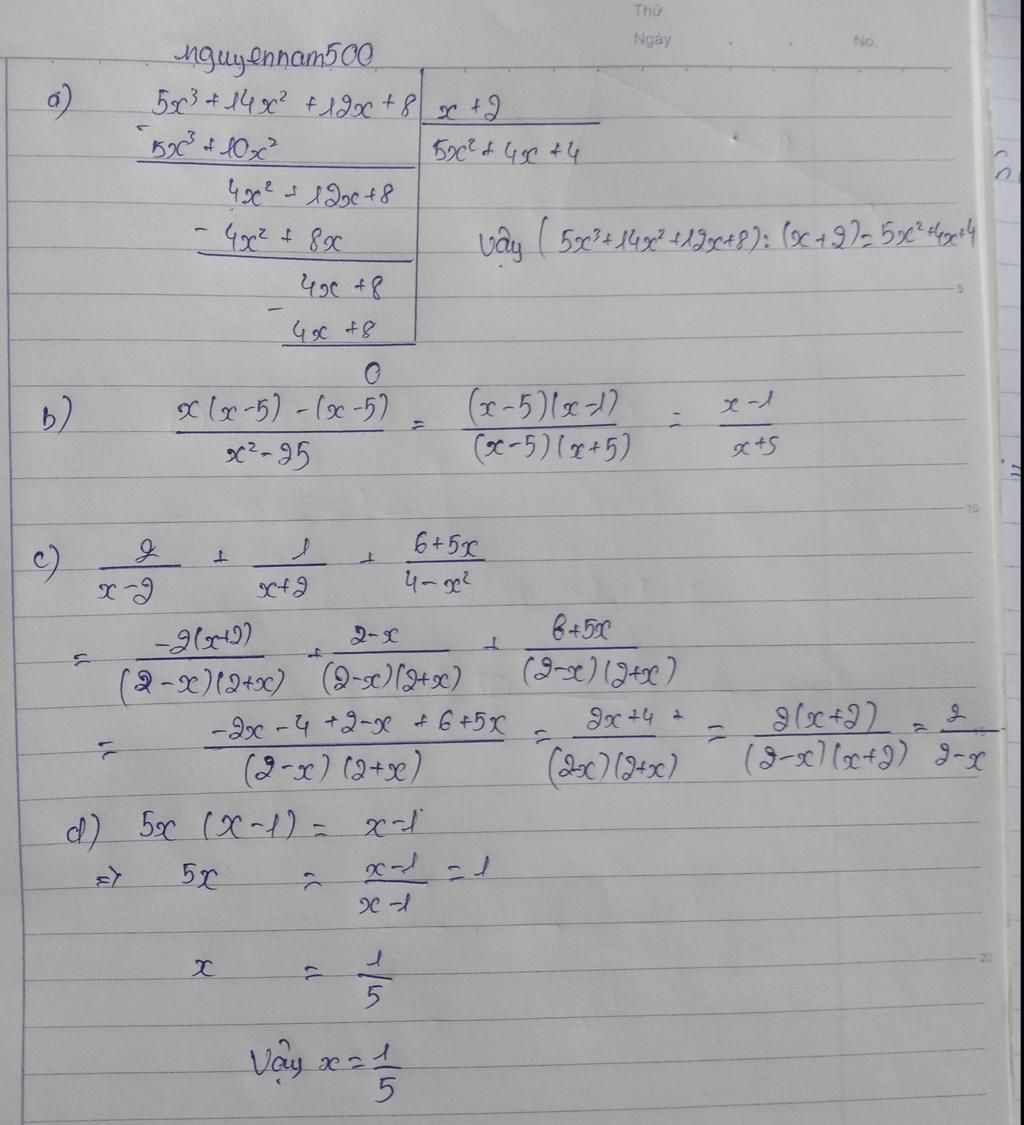 Thứ
Ngày . . No.
nguyennam500
a) 5x³ + 14x² + 12x + 8 | x + 2
- 5x³ + 10x² | 5x² + 4x + 4
4x² + 12x + 8
- 4x² + 8x Vậy (5x³+14x²+12x+8) : (x+2) = 5x²+4x+4
4x + 8
5
- 4x + 8
0
b) \frac{x(x-5) - (x-5)}{x² - 25} = \frac{(x-5)(x-1)}{(x-5)(x+5)} = \frac{x-1}{x+5}
10
c) \frac{2}{x-2} + \frac{1}{x+2} + \frac{6+5x}{4-x²}
= \frac{-2(x+2)}{(2-x)(2+x)} + \frac{2-x}{(2-x)(2+x)} + \frac{6+5x}{(2-x)(2+x)}
= \frac{-2x-4+2-x+6+5x}{(2-x)(2+x)} = \frac{2x+4}{(2x)(2+x)} = \frac{2(x+2)}{(2-x)(x+2)} = \frac{2}{2-x}
d) 5x (x-1) = x-1
=> 5x = \frac{x-1}{x-1} = 1
x = \frac{1}{5}
20
Vậy x = \frac{1}{5}